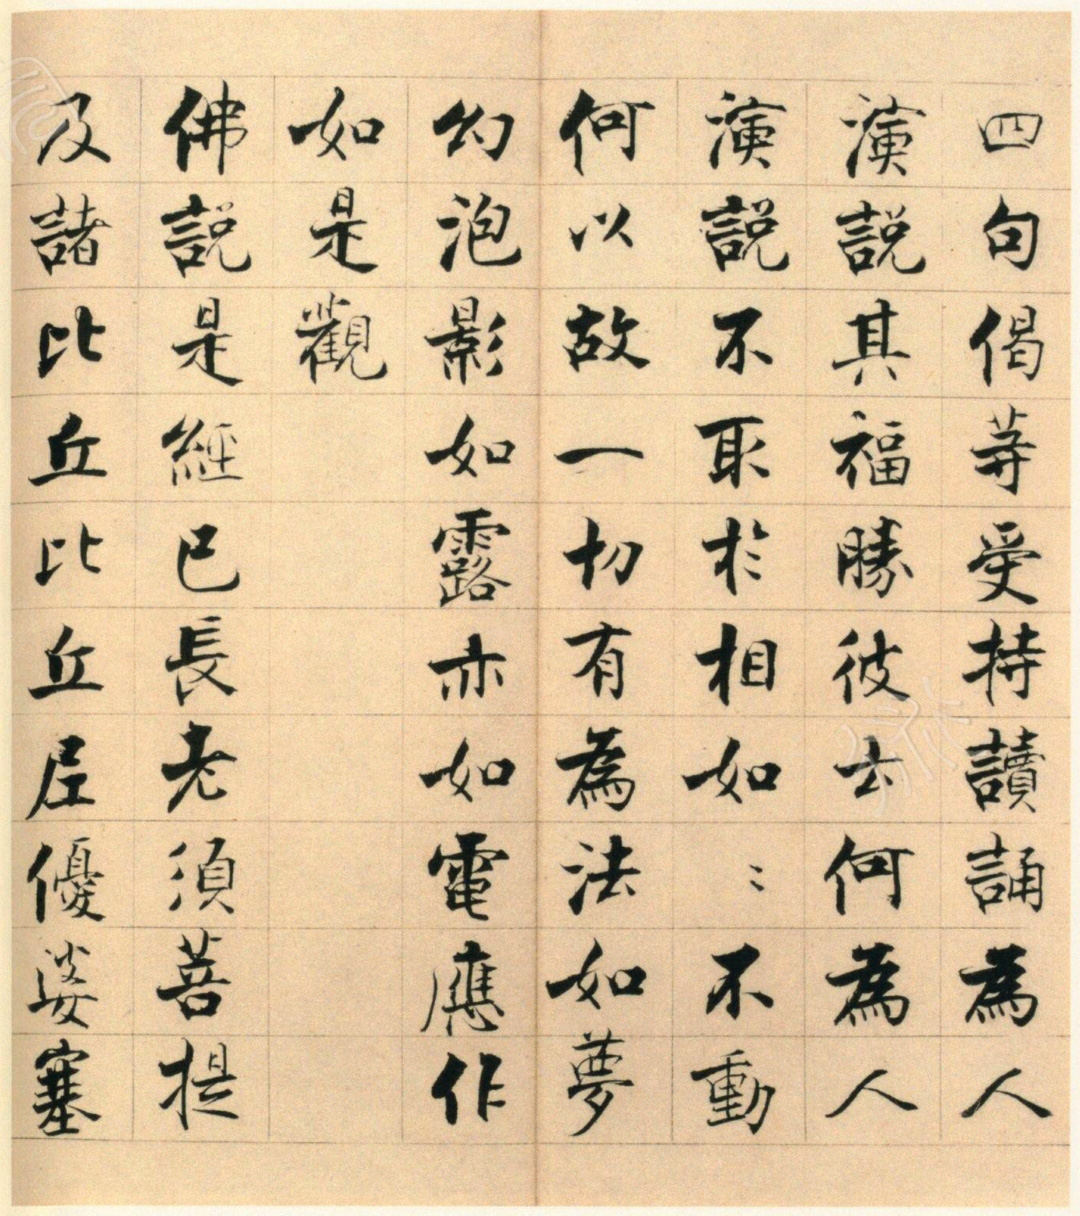 四句偈等受持讀誦為人
演說其福勝彼云何為人
演說不取於相如〻不動
何以故一切有為法如夢
幻泡影如露亦如電應作
如是觀
佛說是經已長老須菩提
及諸比丘比丘尼優婆塞